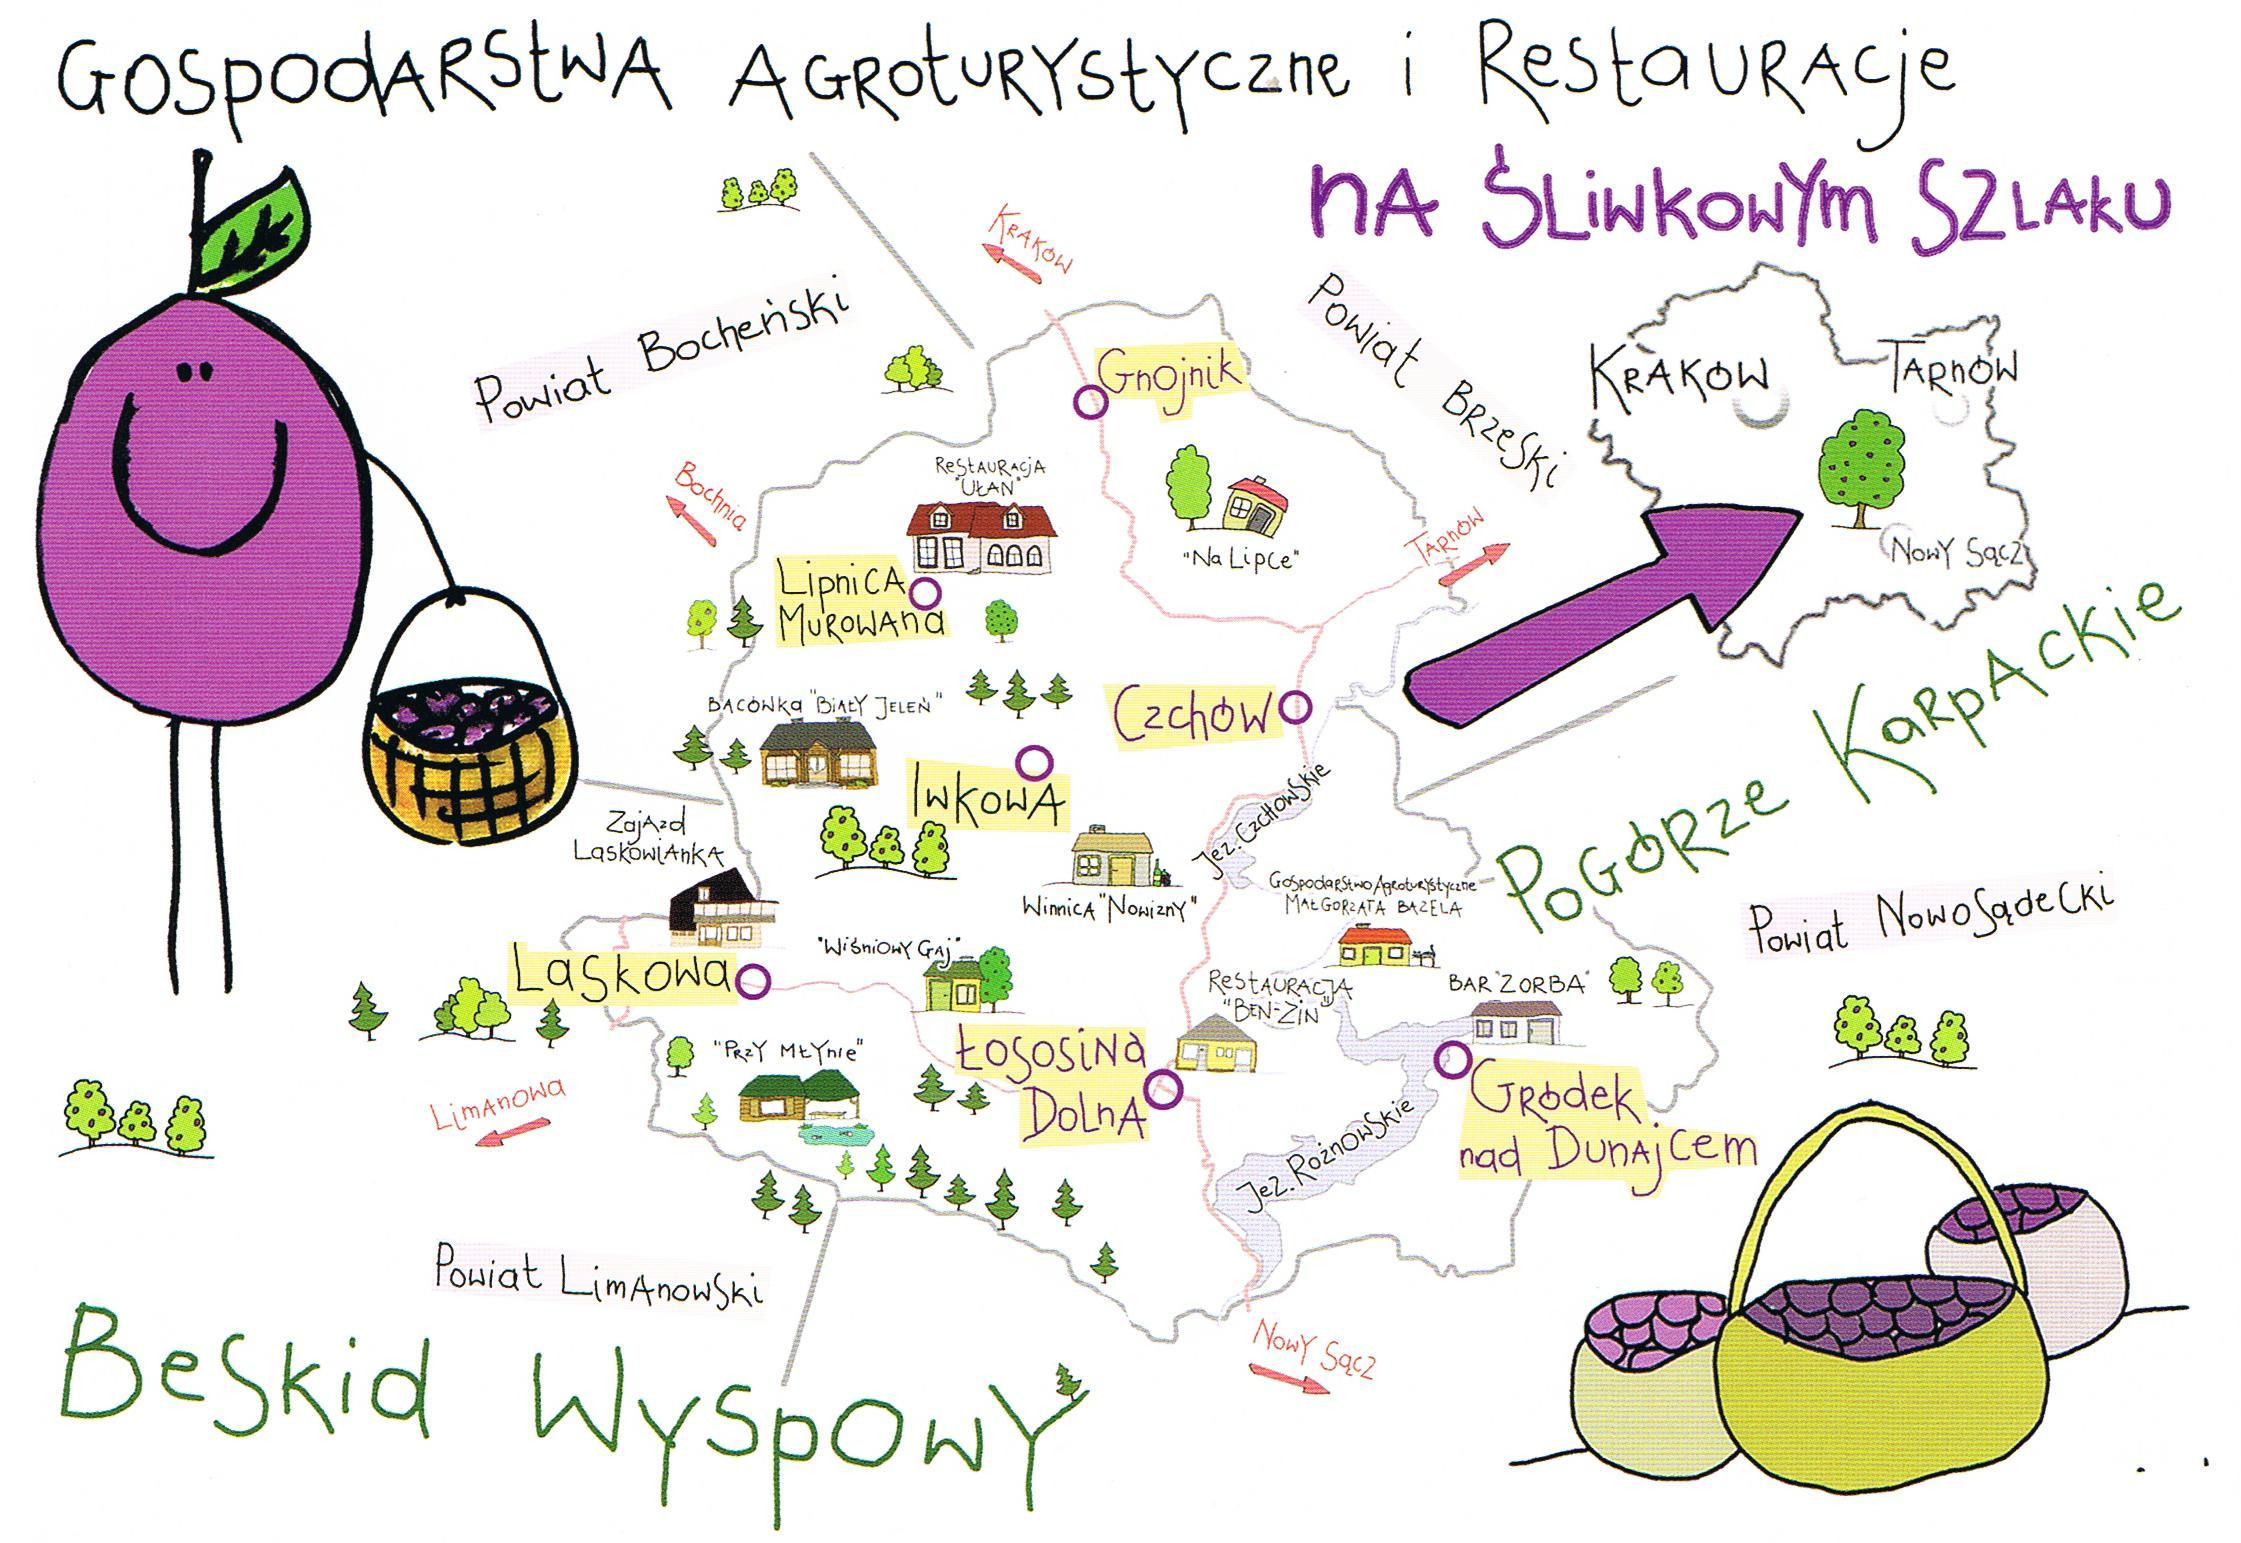 Gospodarstwa Agroturystyczne i Restauracje
na Śliwkowym Szlaku
Kraków
Powiat Bocheński
Powiat Brzeski
Kraków
Tarnów
Nowy Sącz
Gnojnik
Bochnia
Restauracja
"Ułan"
"Na Lipce"
Tarnów
Lipnica
Murowana
Bacówka "Biały Jeleń"
Czchów
Iwkowa
Jez. Czchowskie
Pogórze Karpackie
Zajazd
Laskowianka
Winnica "Nowizny"
Gospodarstwo Agroturystyczne
Małgorzata Bazela
Powiat Nowosądecki
Laskowa
"Wiśniowy Gaj"
Restauracja
"Ben-Zin"
Bar "Zorba"
"Przy Młynie"
Łososina
Dolna
Gródek
nad Dunajcem
Jez. Rożnowskie
Limanowa
Powiat Limanowski
Nowy Sącz
Beskid Wyspowy